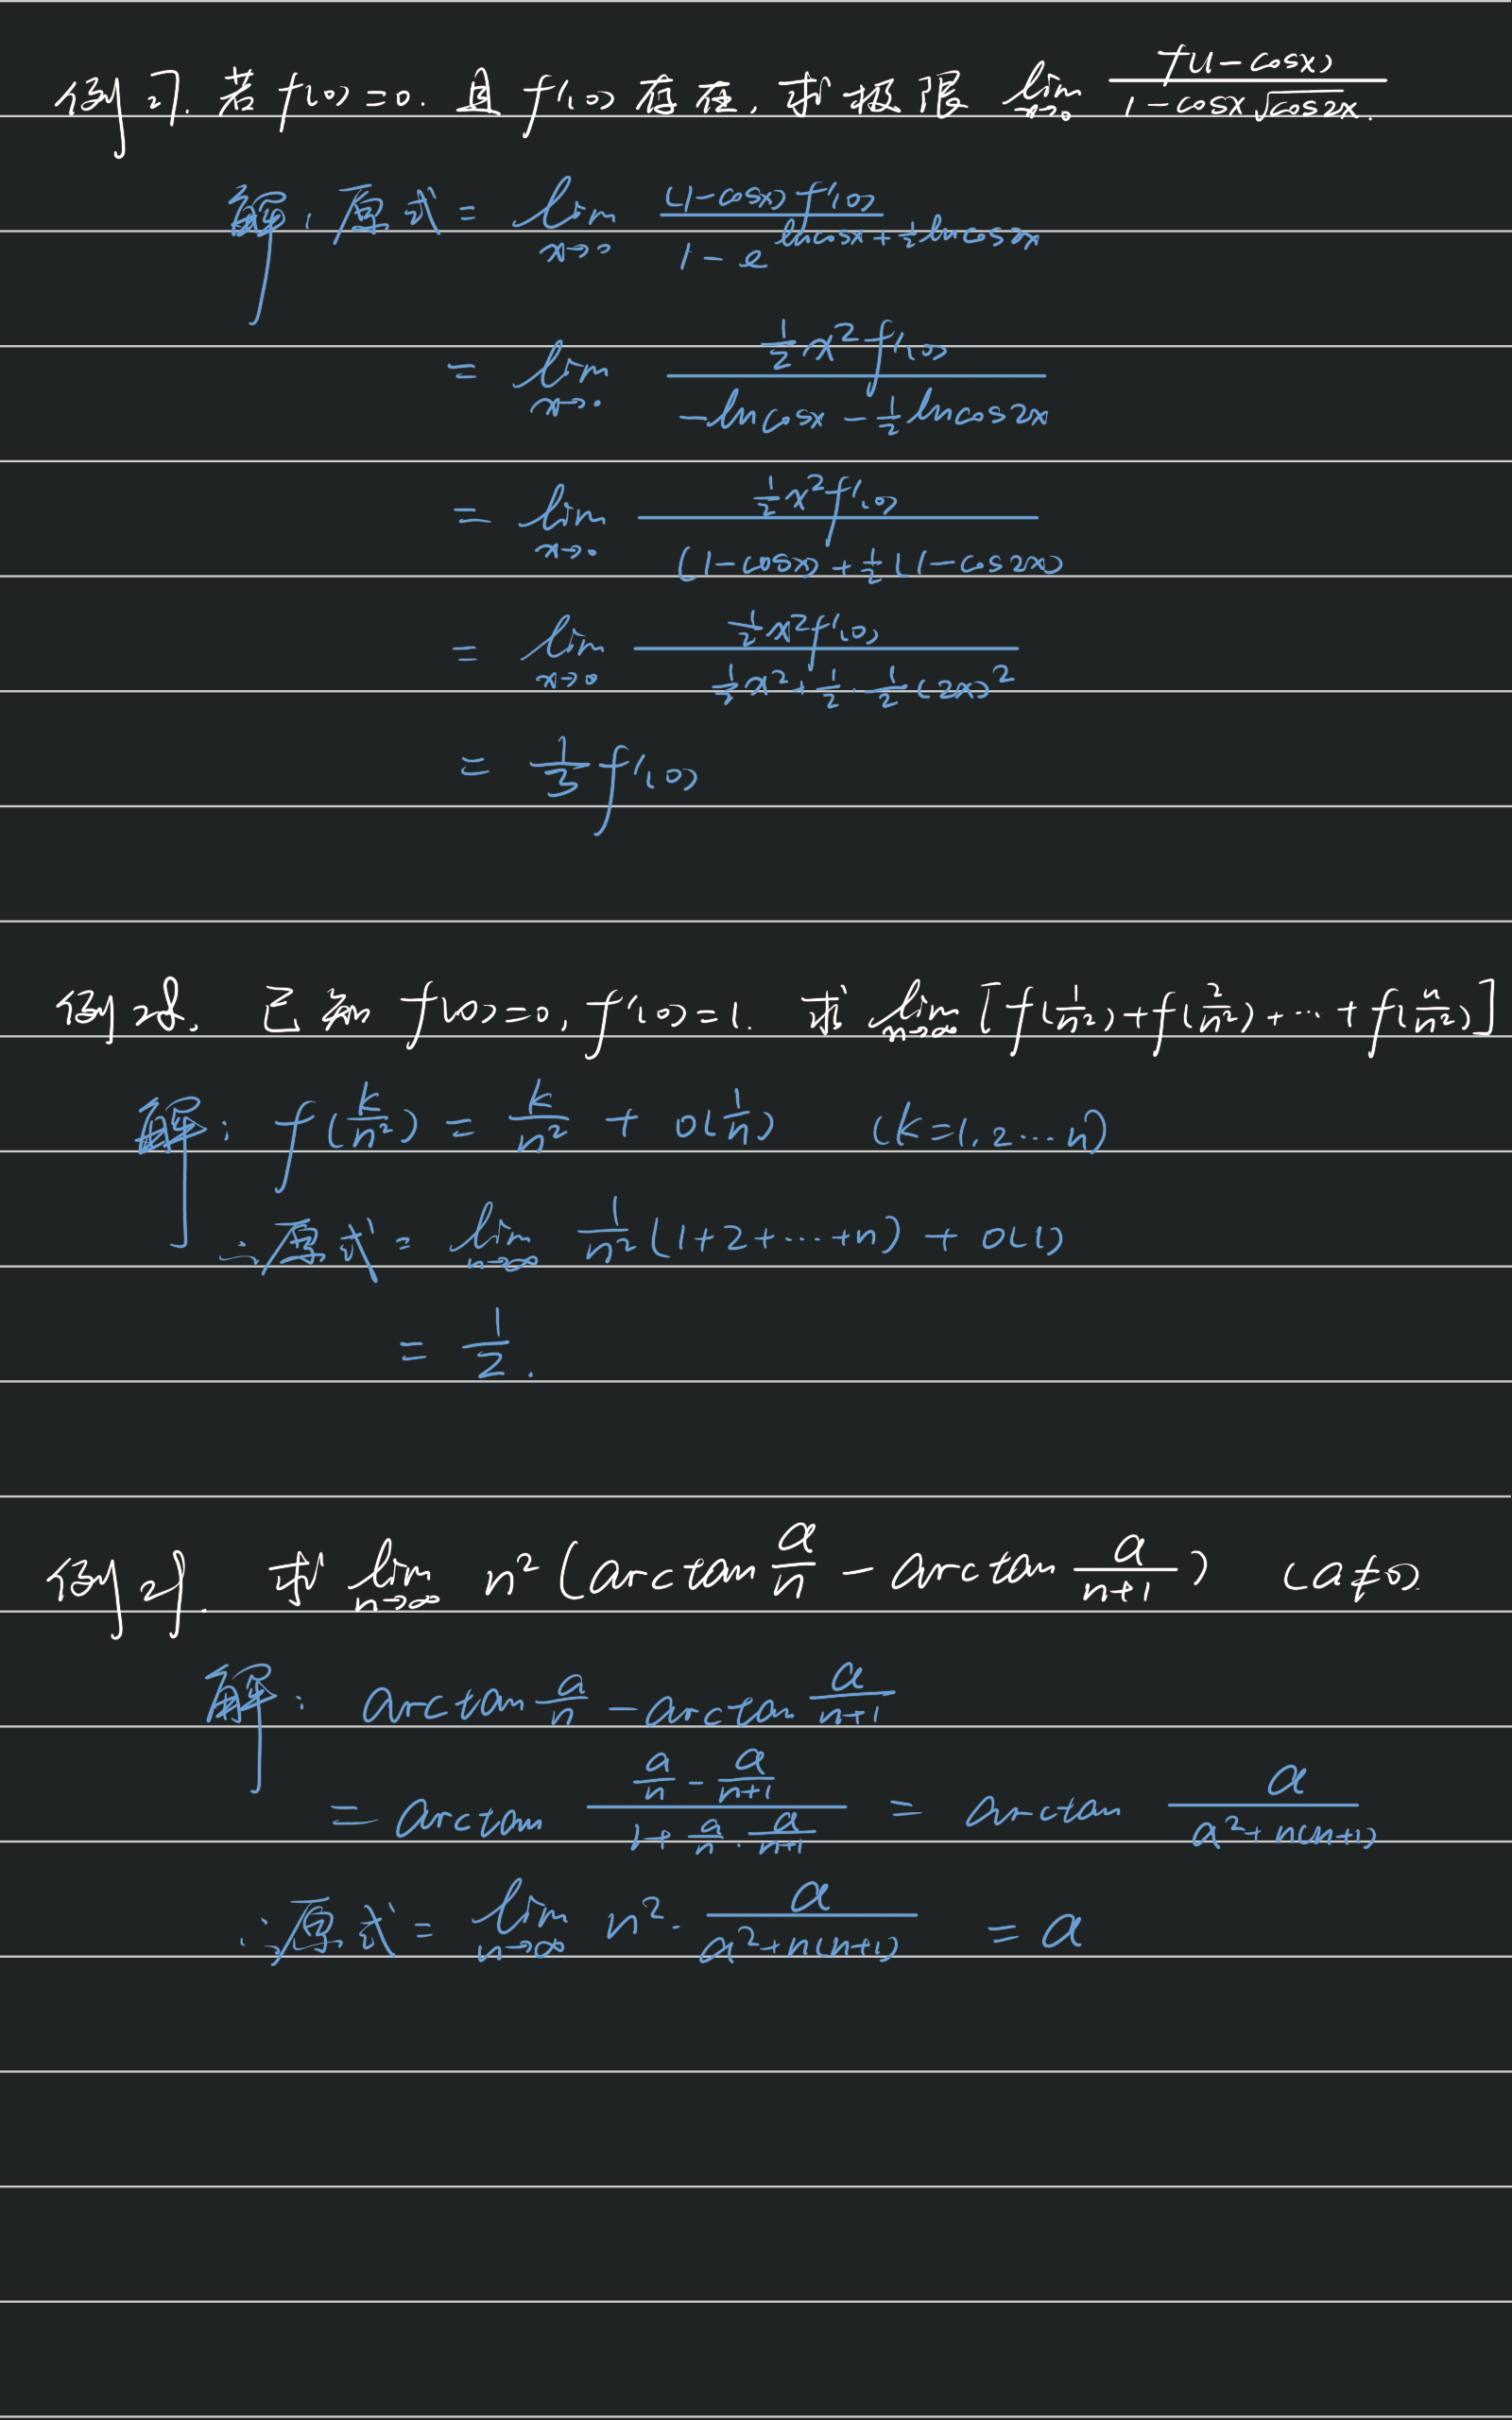 例27. 若 f(0)=0. 且 f'(0) 存在, 求极限 lim_{x→0} f(1-cosx)/(1-cosx√cos2x).
解: 原式 = lim_{x→0} (1-cosx)f'(0)/(1-e^{lncosx+½lncos2x})
= lim_{x→0} ½x²f'(0)/(-lncosx-½lncos2x)
= lim_{x→0} ½x²f'(0)/((1-cosx)+½(1-cos2x))
= lim_{x→0} ½x²f'(0)/(½x²+½·½(2x)²)
= ⅓f'(0)
例28. 已知 f(0)=0, f'(0)=1. 求 lim_{n→∞} [f(1/n²)+f(2/n²)+⋯+f(n/n²)]
解: f(k/n²) = k/n² + o(1/n) (k=1,2…n)
∴原式 = lim_{n→∞} 1/n²(1+2+⋯+n) + o(1)
= ½.
例29. 求 lim_{n→∞} n²(arctan a/n - arctan a/(n+1)) (a≠0).
解: arctan a/n - arctan a/(n+1)
= arctan (a/n - a/(n+1))/(1+a/n·a/(n+1)) = arctan a/(a²+n(n+1))
∴原式 = lim_{n→∞} n²·a/(a²+n(n+1)) = a